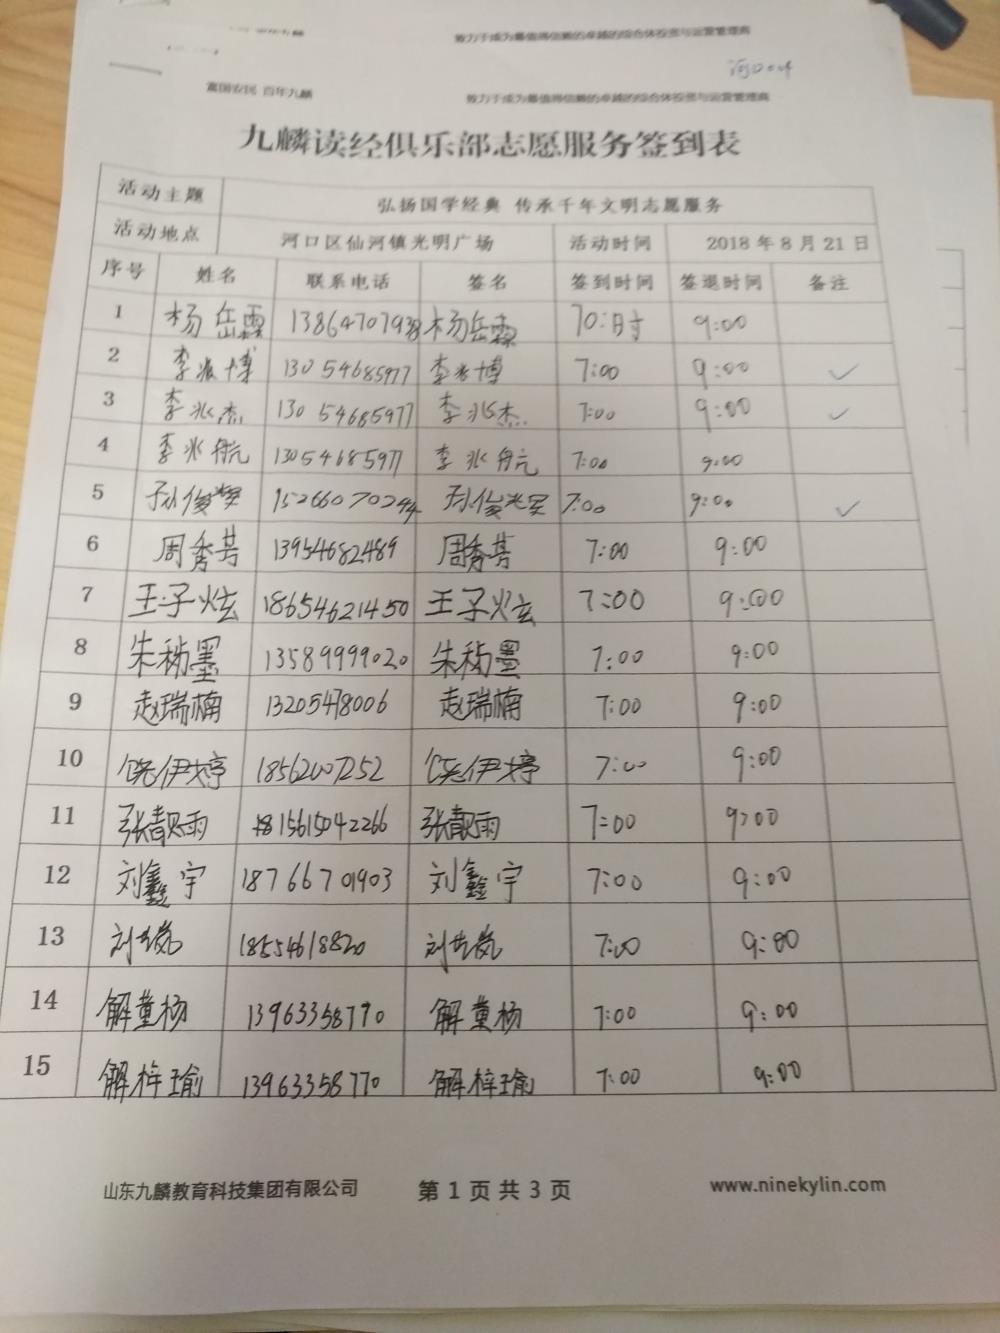 致力于成为最值得信赖的卓越的综合体投资与运营管理商
河口04
富国农民 百年九麟 致力于成为最值得信赖的卓越的综合体投资与运营管理商
九麟读经俱乐部志愿服务签到表
活动主题 弘扬国学经典 传承千年文明志愿服务
活动地点 河口区仙河镇光明广场 活动时间 2018年8月21日
序号 姓名 联系电话 签名 签到时间 签退时间 备注
1 杨岳霖 杨岳霖 9:00
2 李兆博 13054685977 李兆博 7:00 9:00 ✓
3 李兆杰 13054685977 李兆杰 7:00 9:00 ✓
4 李兆航 13054685977 李兆航 7:00 9:00
5 孙俊耀 15266070294 孙俊耀 7:00 9:00 ✓
6 周秀芳 13954682489 周秀芳 7:00 9:00
7 王子炫 18654621450 王子炫 7:00 9:00
8 13589999020 7:00 9:00
9 赵瑞楠 13205478006 赵瑞楠 7:00 9:00
10 饶伊婷 18562007252 饶伊婷 7:00 9:00
11 张靓雨 15615042266 张靓雨 7:00 9:00
12 刘鑫宇 18766701903 刘鑫宇 7:00 9:00
13 18554618820 7:00 9:00
14 解董杨 13963358770 解董杨 7:00 9:00
15 解梓瑜 13963358770 解梓瑜 7:00 9:00
山东九麟教育科技集团有限公司 第1页共3页 www.ninekylin.com